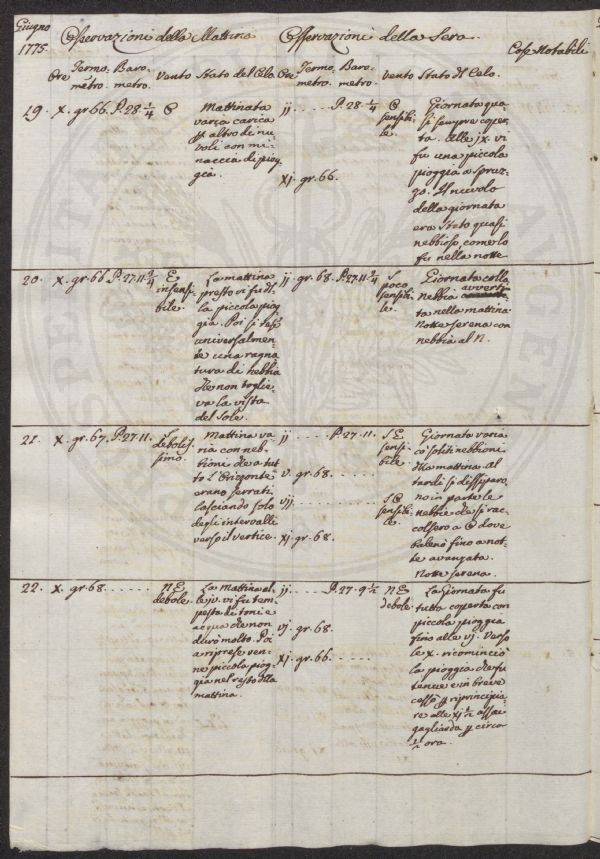 Giugno
1775.
Osservazioni della Mattina
Osservazioni della Sera.
Cose Notabili
Ore Termo- Baro- Vento Stato del Cielo
metro. metro.
Ore Termo- Baro- Vento Stato Del Cielo.
metro. metro.
19. X. gr. 66. P. 28 1/4 O
Mattinata
varia carica
per altro di nu-
voli con mi-
naccia di piog-
gia.
ij ..... P. 28. 1/4 O
sensibi-
le.
xj. gr. 66.
Giornata qua-
si sempre coper-
ta. Alle ix. vi
fu una piccola
pioggia a spruz-
zo. Il nuvolo
della giornata
era stato quasi
nebbioso, come lo
fu nella notte
20. X. gr. 66 P. 27. 11. 3/4 E
insensi-
bile.
La mattina
presto vi fu del-
la piccola piog-
gia. Poi si tesse
universalmen-
te una ragna
tura di nebbia
che non toglie-
va la vista
del Sole.
ij gr. 68. P. 27. 11. 3/4 S
poco
sensibi-
le.
Giornata colla
nebbia
ta nella mattina
Notte serena con
nebbia al N.
21. X. gr. 67. P. 27. 11.
debolis-
simo.
Mattina va
ria con neb-
bioni che a tut
to l'Orizonte
erano serrati
lasciando solo
degli intervalli
verso il vertice.
ij ..... P. 27. 11. S E
sensi-
bile
v. gr. 68. .....
vij. ..... S O
sensibi-
le.
xj gr. 68.
Giornata varia
co' soliti nebbioni
che mattina al
tardi si dissiparo-
no in parte le
nebbie che si rac-
colsero a O dove
balenò fino a not-
te avanzata.
Notte serena.
22. X. gr. 68. ..... N E
debole.
La mattina al-
le iv. vi fu tem-
pesta di toni e
acqua che non
durò molto. Poi
a riprese ven-
ne piccola piog-
gia nel resto della
mattina.
ij. ..... P. 27. 9 1/2 N E
debole
vj gr. 68.
xj. gr. 66. .....
La Giornata fu
tutta coperta con
piccola pioggia
fino alle vj. Verso
le x. ricominciò
la pioggia che fu
tenue e in breve
cessò per riprincipia-
re alle xj 1/2 assai
gagliarda per circa
1/2 ora.